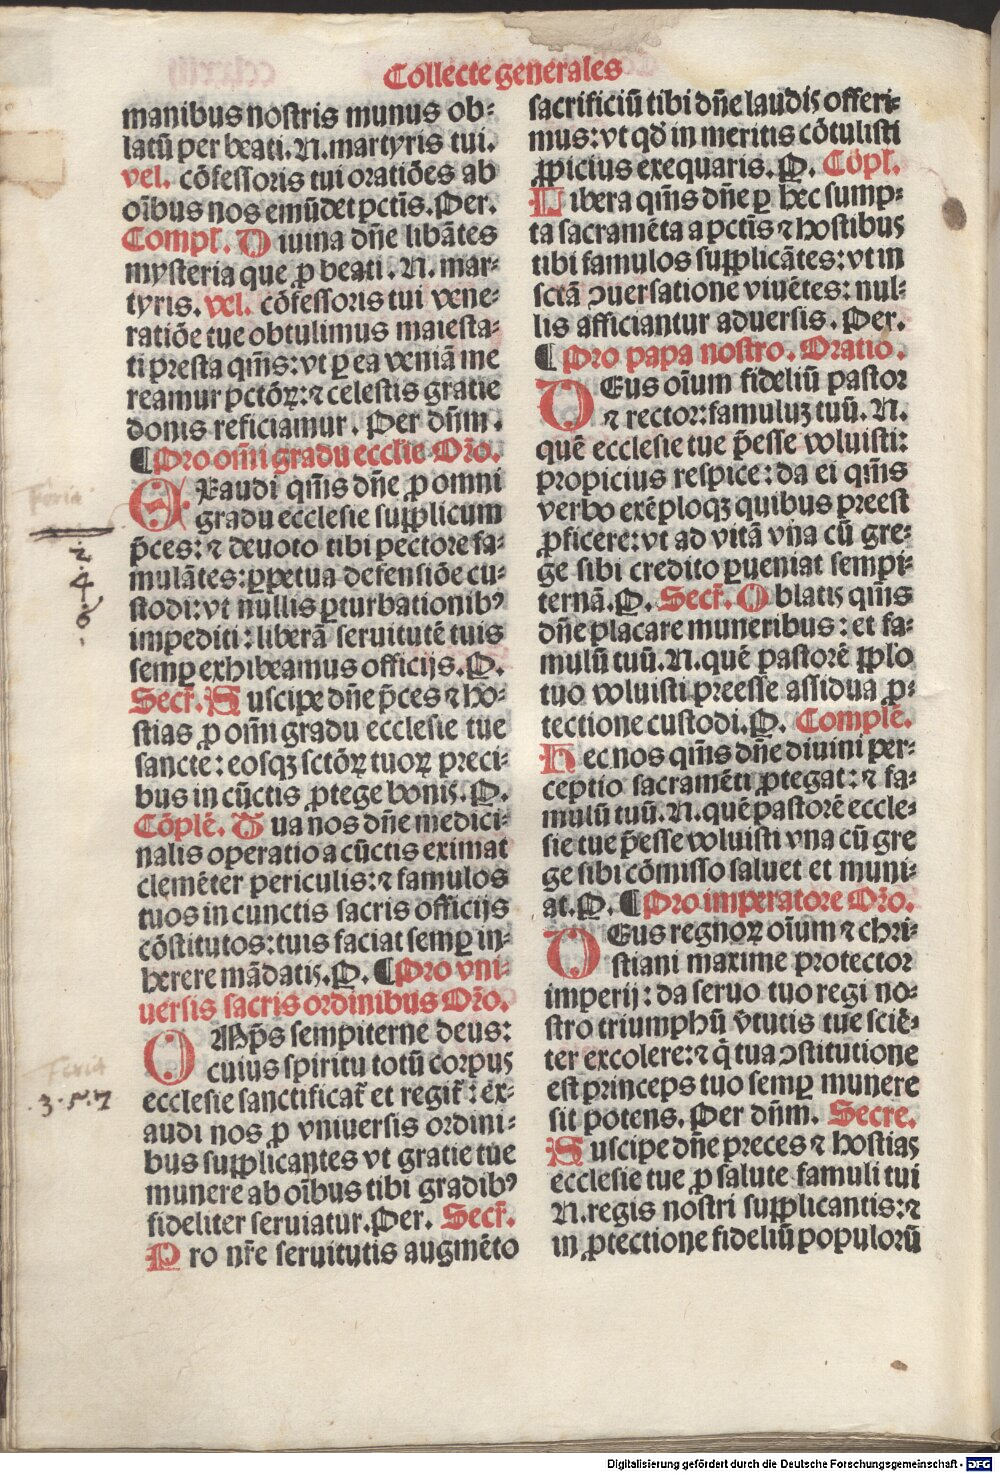 Collecte generales
manibus nostris munus ob-
latū per beati. N. martyris tui.
vel. cōfessoris tui oratiōes ab
oībus nos emūdet pctīs. Per.
Compl. Diuina dñe libātes
mysteria que ꝓ beati. N. mar-
tyris. vel. cōfessoris tui vene-
ratiōe tue obtulimus maiesta-
ti presta qm̄s: vt ꝑ ea veniā me
reamur pctōꝝ: ⁊ celestis gratie
donis reficiamur. Per dn̄m.
¶ Pro om̄i gradu ecclie Oro.
EXaudi qm̄s dñe ꝓ omni
gradu ecclesie supplicum
p̄ces: ⁊ deuoto tibi pectore fa-
mulātes: ꝑpetua defensiōe cu-
stodi: vt nullis ꝑturbationibꝰ
impediti: liberā seruitutē tuis
semꝑ exhibeamus officijs. P.
Secr̄. Suscipe dñe p̄ces ⁊ ho-
stias ꝓ om̄i gradu ecclesie tue
sancte: eosqꝫ sctōꝝ tuoꝝ preci-
bus in cūctis ꝓtege bonis. P.
Cōplē. Tua nos dñe medici-
nalis operatio a cūctis eximat
clemēter periculis: ⁊ famulos
tuos in cunctis sacris officijs
cōstitutos: tuis faciat semꝑ in-
herere mādatis. P. ¶ Pro vni-
uersis sacris ordinibus Oro.
OMp̄s sempiterne deus:
cuius spiritu totū corpus
ecclesie sanctificat̄ et regit̄: ex-
audi nos ꝓ vniuersis ordini-
bus supplicantes vt gratie tue
munere ab oībus tibi gradibꝰ
fideliter seruiatur. Per. Secr̄.
Pro nr̄e seruitutis augmēto
sacrificiū tibi dñe laudis offeri-
mus: vt qd̄ in meritis cōtulisti
ꝓpicius exequaris. P. Cōpl.
Libera qm̄s dñe ꝑ hec sump-
ta sacramēta a pctīs ⁊ hostibus
tibi famulos supplicātes: vt in
sctā ꝯuersatione viuētes: nul-
lis afficiantur aduersis. Per.
¶ Pro papa nostro. Oratio.
DEus oīum fideliū pastor
⁊ rector: famuluꝫ tuū. N.
quē ecclesie tue p̄esse voluisti:
propicius respice: da ei qm̄s
verbo exēploqꝫ quibus preest
ꝓficere: vt ad vitā vna cū gre-
ge sibi credito ꝑueniat sempi-
ternā. P. Secr̄. Oblatis qm̄s
dñe placare muneribus: et fa-
mulū tuū. N. quē pastorē pplo
tuo voluisti preesse assidua ꝓ-
tectione custodi. P. Complē.
Hec nos qm̄s dñe diuini per-
ceptio sacramēti ꝓtegat: ⁊ fa-
mulū tuū. N. quē pastorē eccle-
sie tue p̄esse voluisti vna cū gre
ge sibi cōmisso saluet et muni-
at. P. ¶ Pro imperatore Oro.
DEus regnoꝝ oīum ⁊ chri-
stiani maxime protector
imperij: da seruo tuo regi no-
stro triumphū v̄tutis tue sciē-
ter excolere: ⁊ q̄ tua ꝯstitutione
est princeps tuo semꝑ munere
sit potens. Per dn̄m. Secre.
Suscipe dñe preces ⁊ hostias
ecclesie tue ꝓ salute famuli tui
N. regis nostri supplicantis: ⁊
in ꝓtectione fideliū populorū
Feria
2.
4.
6.
Feria
.3.5.7
Digitalisierung gefördert durch die Deutsche Forschungsgemeinschaft - DFG